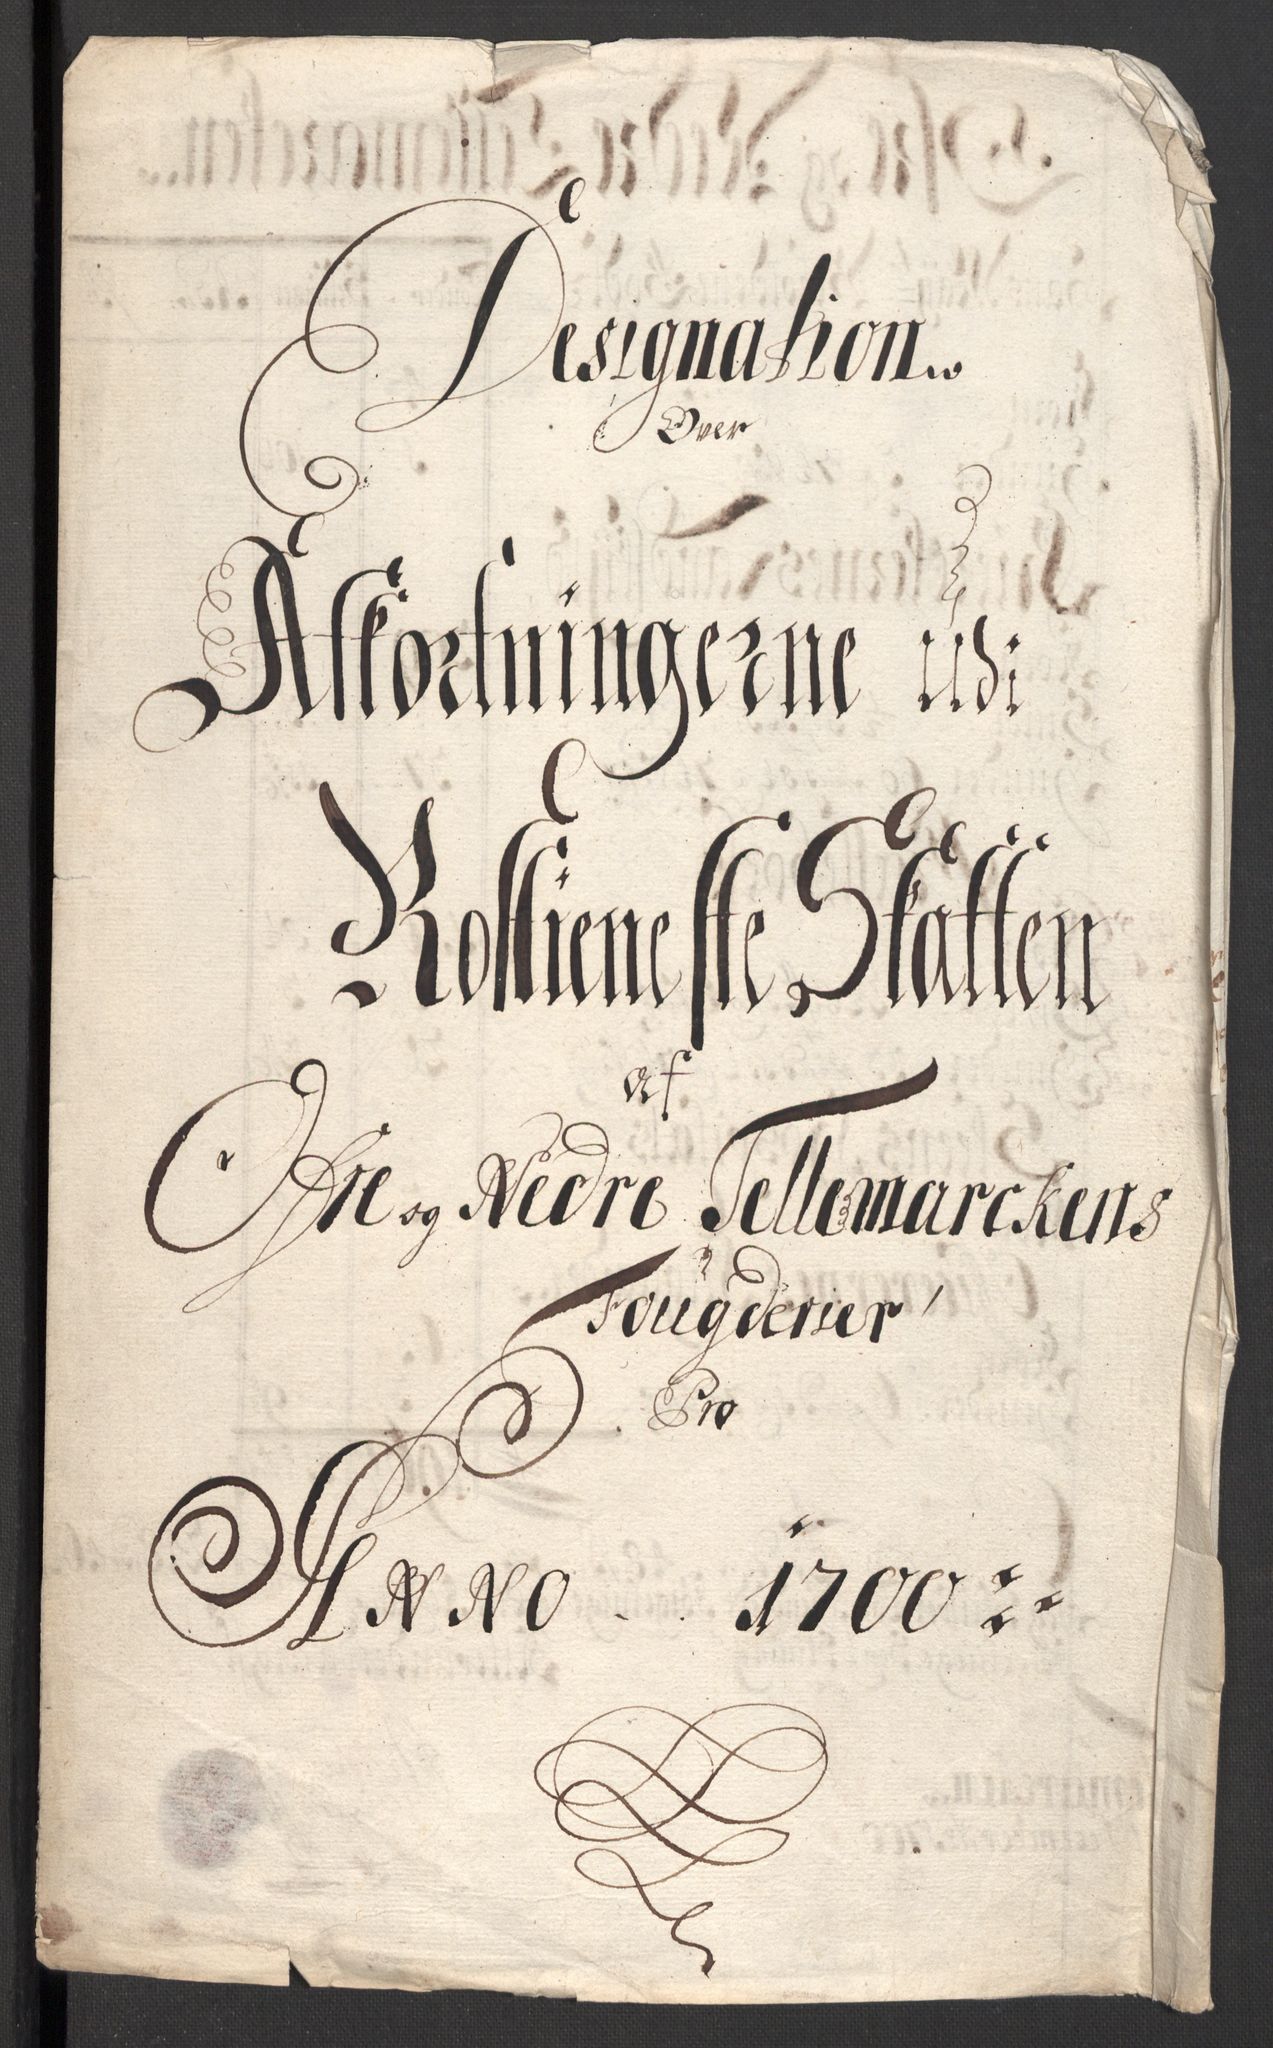 Designation
Over
Afkortningerne udi
Rostieneste Skatten
af
Øfre og Nedre Tellemarckens
Fougderier
Pro
ANNO 1700